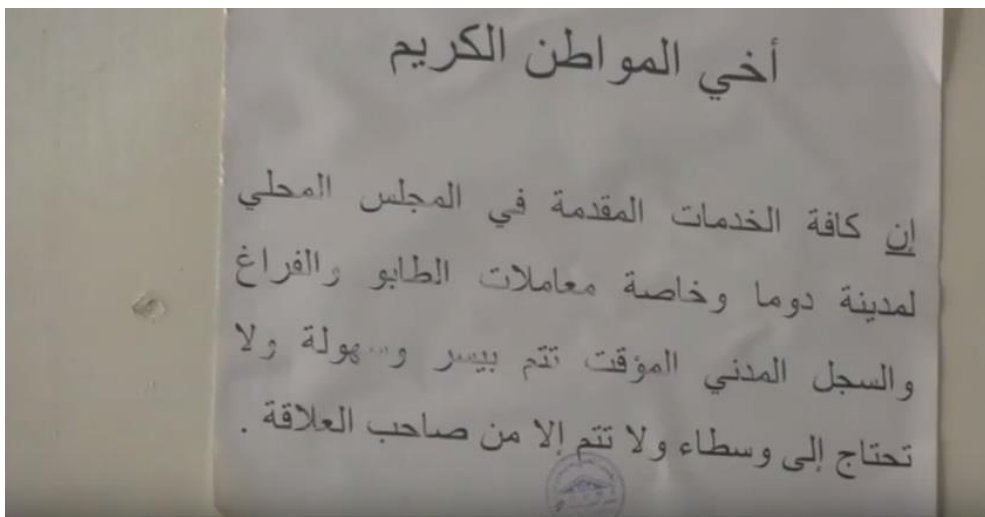 أخي المواطن الكريم
إن كافة الخدمات المقدمة في المجلس المحلي
لمدينة دوما وخاصة معاملات الطابو والفراغ
والسجل المدني المؤقت تتم بيسر وسهولة ولا
تحتاج إلى وسطاء ولا تتم إلا من صاحب العلاقة .